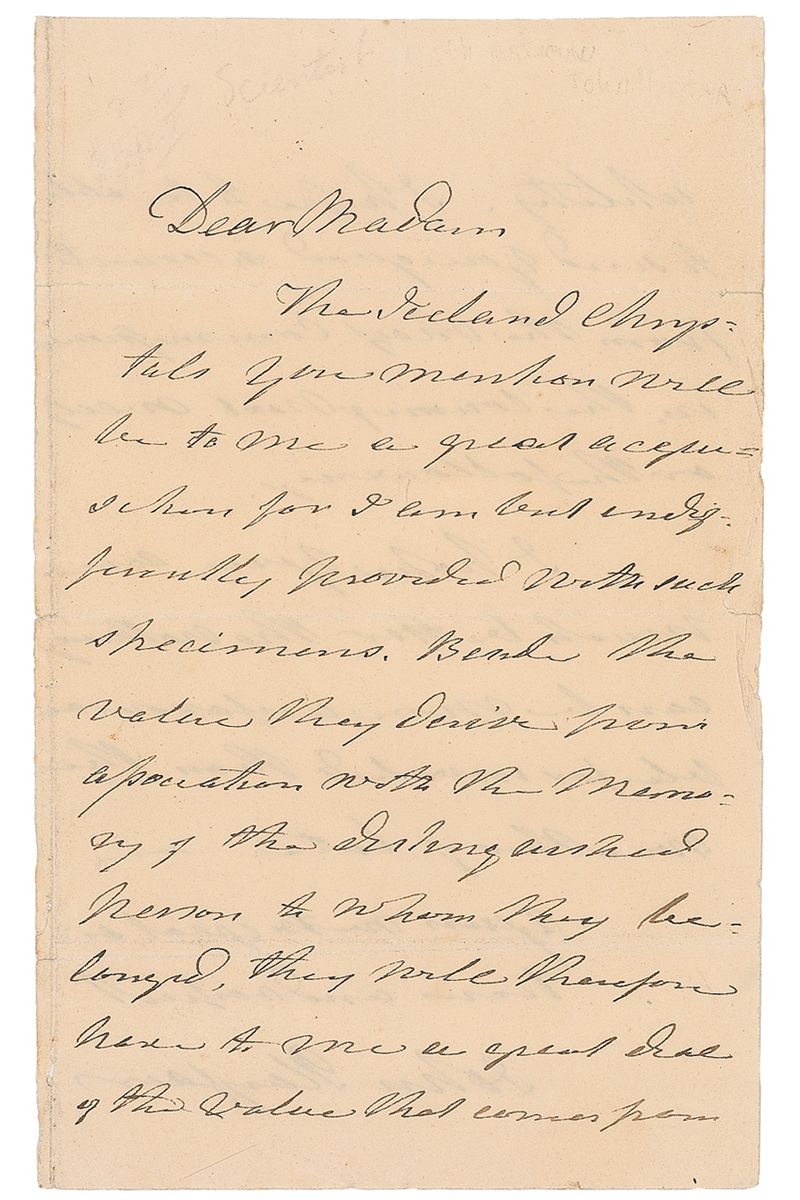 Scientist
Dear Madam
The Iceland Chrys-
tals you mention will
be to me a great acqui-
sition for I am but indif-
ferently provided with such
specimens. Beside the
value they derive from
association with the Memo-
ry of the distinguished
person to whom they be-
longed, they will therefore
have to me a great deal
of the value that comes from